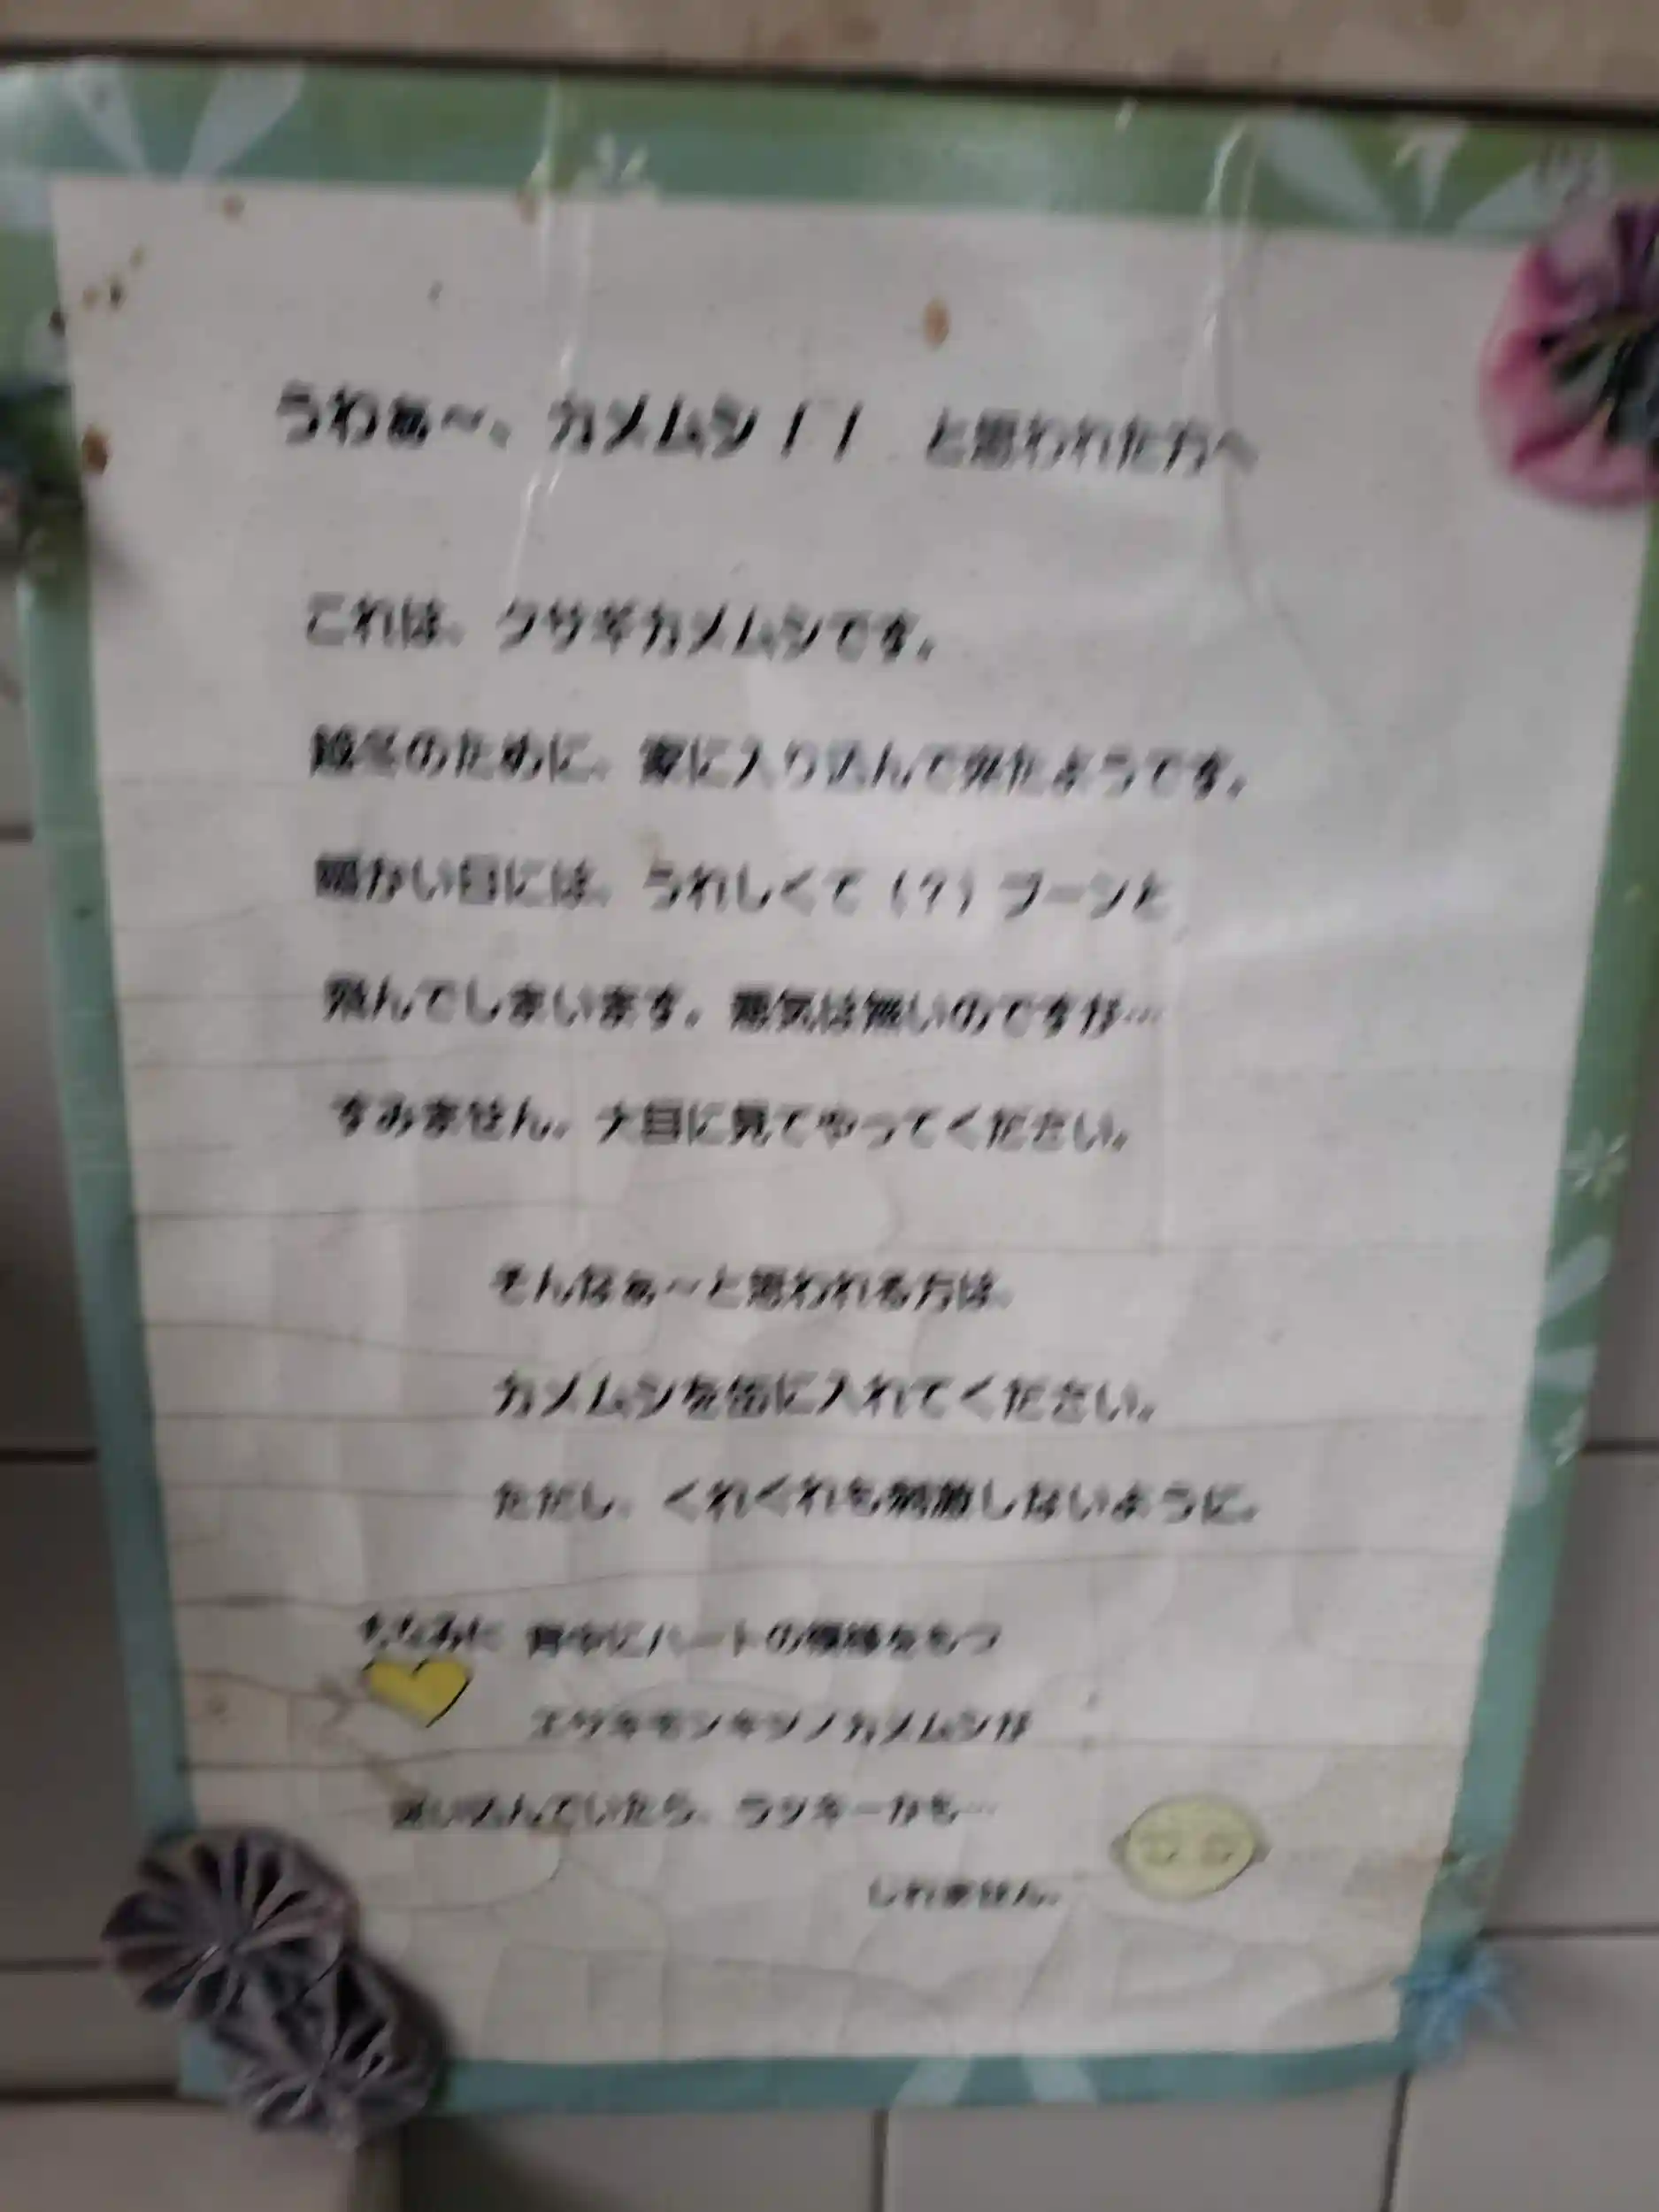 うわぁ～、カメムシ！！　と思われた方へ
これは、クサギカメムシです。
越冬のために、家に入り込んで来たようです。
暖かい日には、うれしくて（？）ブーンと
飛んでしまいます。悪気は無いのですが…
すみません。大目に見てやってください。
そんなぁ～と思われる方は、
カメムシを缶に入れてください。
ただし、くれぐれも刺激しないように。
ちなみに 背中にハートの模様をもつ
エサキモンキツノカメムシが
迷い込んでいたら、ラッキーかも…
しれません。